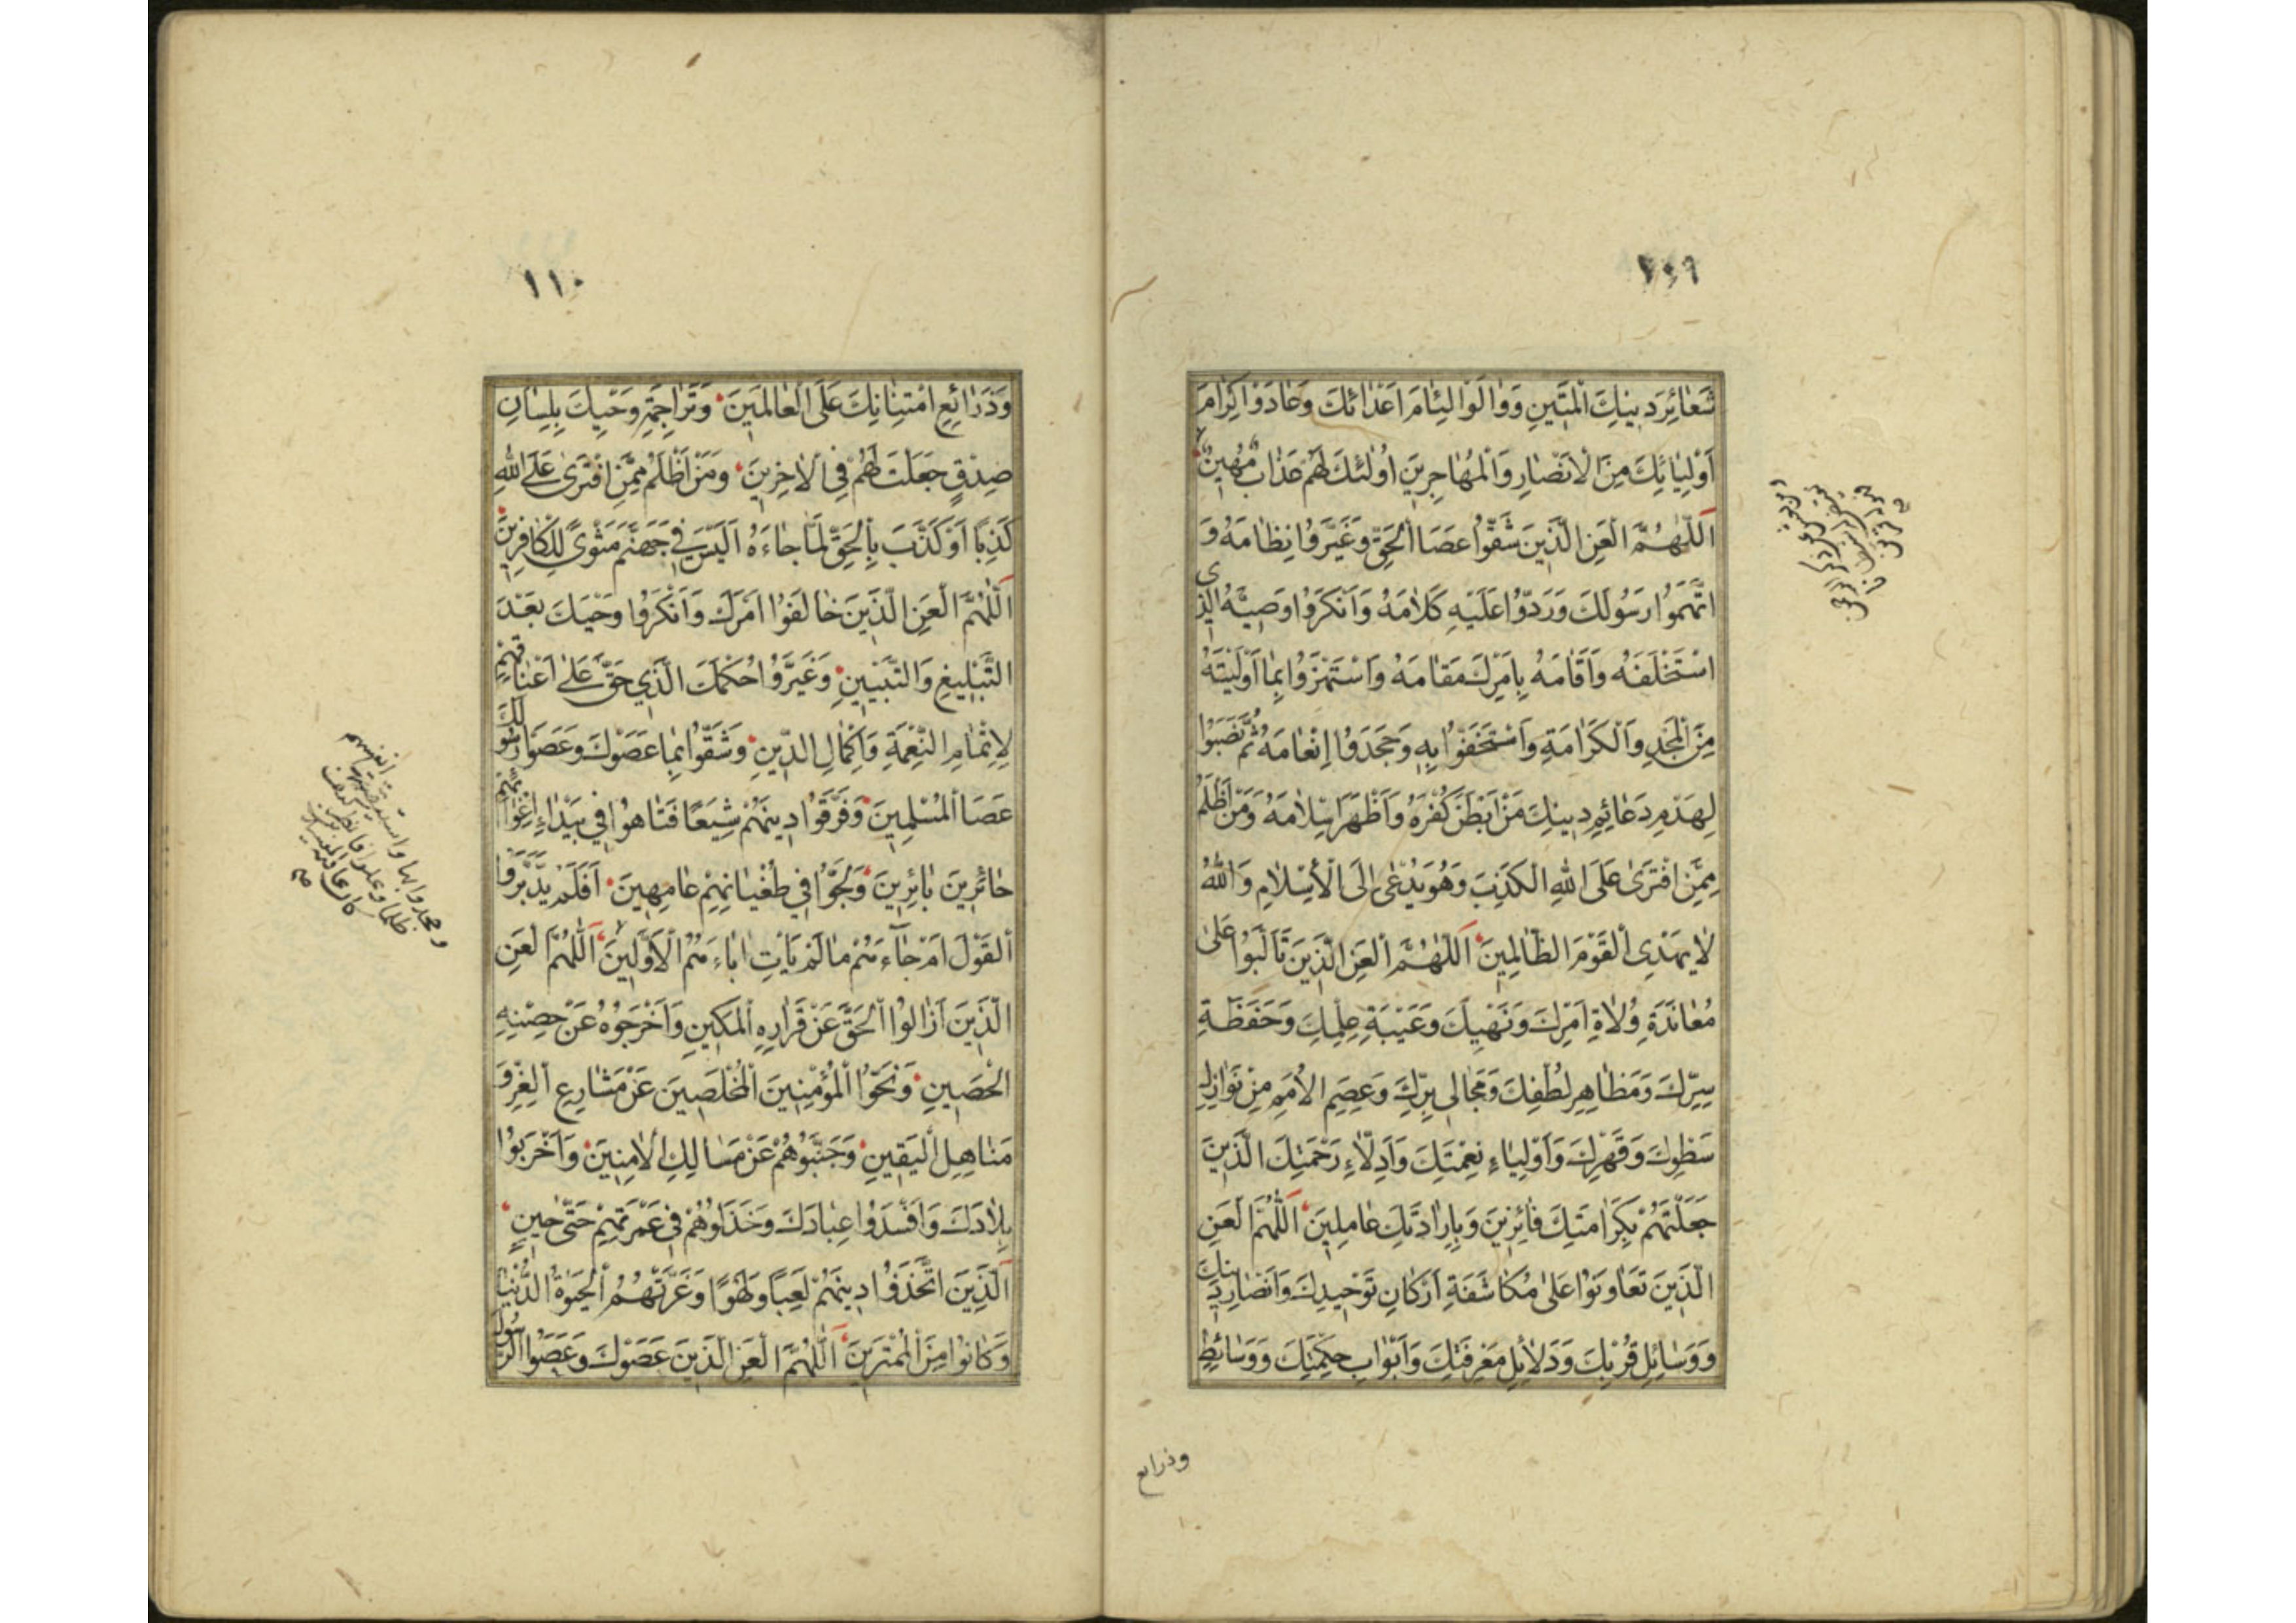 ١٠٩
شَعَائِرَ دِينِكَ الْمَتِينِ وَوَالَوْا لِئَامَ اَعْدَائِكَ وَعَادَوْا كِرَامَ
اَوْلِيَائِكَ مِنَ الْاَنْصَارِ وَالْمُهَاجِرِينَ اُولٰئِكَ لَهُمْ عَذَابٌ مُهِينٌ
اَللّٰهُمَّ الْعَنِ الَّذِينَ شَقُّوا عَصَا الْحَقِّ وَغَيَّرُوا نِظَامَهُ وَ
اتَّهَمُوا رَسُولَكَ وَرَدُّوا عَلَيْهِ كَلَامَهُ وَاَنْكَرُوا وَصِيَّهُ الَّذِي
اسْتَخْلَفَهُ وَاَقَامَهُ بِاَمْرِكَ مَقَامَهُ وَاسْتَهْزَؤُا بِمَا اَوْلَيْتَهُ
مِنَ الْمَجْدِ وَالْكَرَامَةِ وَاسْتَخَفُّوا بِهِ وَجَحَدُوا اِنْعَامَهُ ثُمَّ نَصَبُوا
لِهَدْمِ دَعَائِمِ دِينِكَ مَنْ اَبْطَنَ كُفْرَهُ وَاَظْهَرَ اِسْلَامَهُ وَمَنْ اَظْلَمُ
مِمَّنِ افْتَرَىٰ عَلَى اللهِ الْكَذِبَ وَهُوَ يُدْعَىٰ اِلَى الْاِسْلَامِ وَاللهُ
لَا يَهْدِى الْقَوْمَ الظَّالِمِينَ اَللّٰهُمَّ الْعَنِ الَّذِينَ تَأَلَّبُوا عَلَىٰ
مُعَانَدَةِ وُلَاةِ اَمْرِكَ وَنَهْيِكَ وَعَيْبَةِ عِلْمِكَ وَحَفَظَةِ
سِرِّكَ وَمَظَاهِرِ لُطْفِكَ وَمَجَالِي بِرِّكَ وَعِصَمِ الْاُمَمِ مِنْ نَوَازِلِ
سَطْوَتِكَ وَقَهْرِكَ وَاَوْلِيَاءِ نِعْمَتِكَ وَاَدِلَّاءِ رَحْمَتِكَ الَّذِينَ
جَعَلْتَهُمْ بِكَرَامَتِكَ فَائِزِينَ وَبِاِرَادَتِكَ عَامِلِينَ اَللّٰهُمَّ الْعَنِ
الَّذِينَ تَعَاوَنَوْا عَلىٰ مُكَاشَفَةِ اَرْكَانِ تَوْحِيدِكَ وَاَنْصَارِ دِينِكَ
وَوَسَائِلِ قُرْبِكَ وَدَلَائِلِ مَعْرِفَتِكَ وَاَبْوَابِ حِكْمَتِكَ وَوَسَائِطِ
وذرايع
١١٠
وَذَرَائِعِ امْتِنَانِكَ عَلَى الْعَالَمِينَ وَتَرَاجِمَةِ وَحْيِكَ بِلِسَانِ
صِدْقٍ جَعَلْتَ لَهُمْ فِي الْاٰخِرِينَ وَمَنْ اَظْلَمُ مِمَّنِ افْتَرَىٰ عَلَى اللهِ
كَذِبًا اَوْ كَذَّبَ بِالْحَقِّ لَمَّا جَاءَهُ اَلَيْسَ فِي جَهَنَّمَ مَثْوًى لِلْكَافِرِينَ
اَللّٰهُمَّ الْعَنِ الَّذِينَ خَالَفُوا اَمْرَكَ وَاَنْكَرُوا وَحْيَكَ بَعْدَ
التَّبْلِيغِ وَالتَّبْيِينِ وَغَيَّرُوا حُكْمَكَ الَّذِي حَقَّ عَلىٰ اَعْنَاقِهِمْ
لِاِتْمَامِ النِّعْمَةِ وَاِكْمَالِ الدِّينِ وَشَقُّوا بِمَا عَصَوْكَ وَعَصَوْا رَسُولَكَ
عَصَا الْمُسْلِمِينَ وَفَرَّقُوا دِينَهُمْ شِيَعًا فَتَاهُوا فِي بَيْدَاءِ اِغْوَائِهِمْ
حَائِرِينَ بَائِرِينَ وَلَجُّوا فِي طُغْيَانِهِمْ عَامِهِينَ اَفَلَمْ يَدَّبَّرُوا
الْقَوْلَ اَمْ جَاءَهُمْ مَا لَمْ يَأْتِ اٰبَاءَهُمُ الْاَوَّلِينَ اَللّٰهُمَّ الْعَنِ
الَّذِينَ اَزَالُوا الْحَقَّ عَنْ قَرَارِهِ الْمَكِينِ وَاَخْرَجُوهُ عَنْ حِصْنِهِ
الْحَصِينِ وَنَحَّوُا الْمُؤْمِنِينَ الْمُخْلَصِينَ عَنْ مَشَارِعِ الْعِزِّ وَ
مَنَاهِلِ الْيَقِينِ وَجَنَّبُوهُمْ عَنْ مَسَالِكِ الْاٰمِنِينَ وَاَخْرَبُوا
بِلَادَكَ وَاَفْسَدُوا عِبَادَكَ وَخَذَلُوهُمْ فِي غَمْرَتِهِمْ حَتّىٰ حِينٍ
اَلَّذِينَ اتَّخَذُوا دِينَهُمْ لَعِبًا وَلَهْوًا وَغَرَّتْهُمُ الْحَيٰوةُ الدُّنْيَا
وَكَانُوا مِنَ الْمُمْتَرِينَ اَللّٰهُمَّ الْعَنِ الَّذِينَ عَصَوْكَ وَعَصَوُا الرَّسُولَ
وجحدوا بها واستيقنتها انفسهم
ظلما وعلوا فانظر كيف
كان عاقبة المفسدين